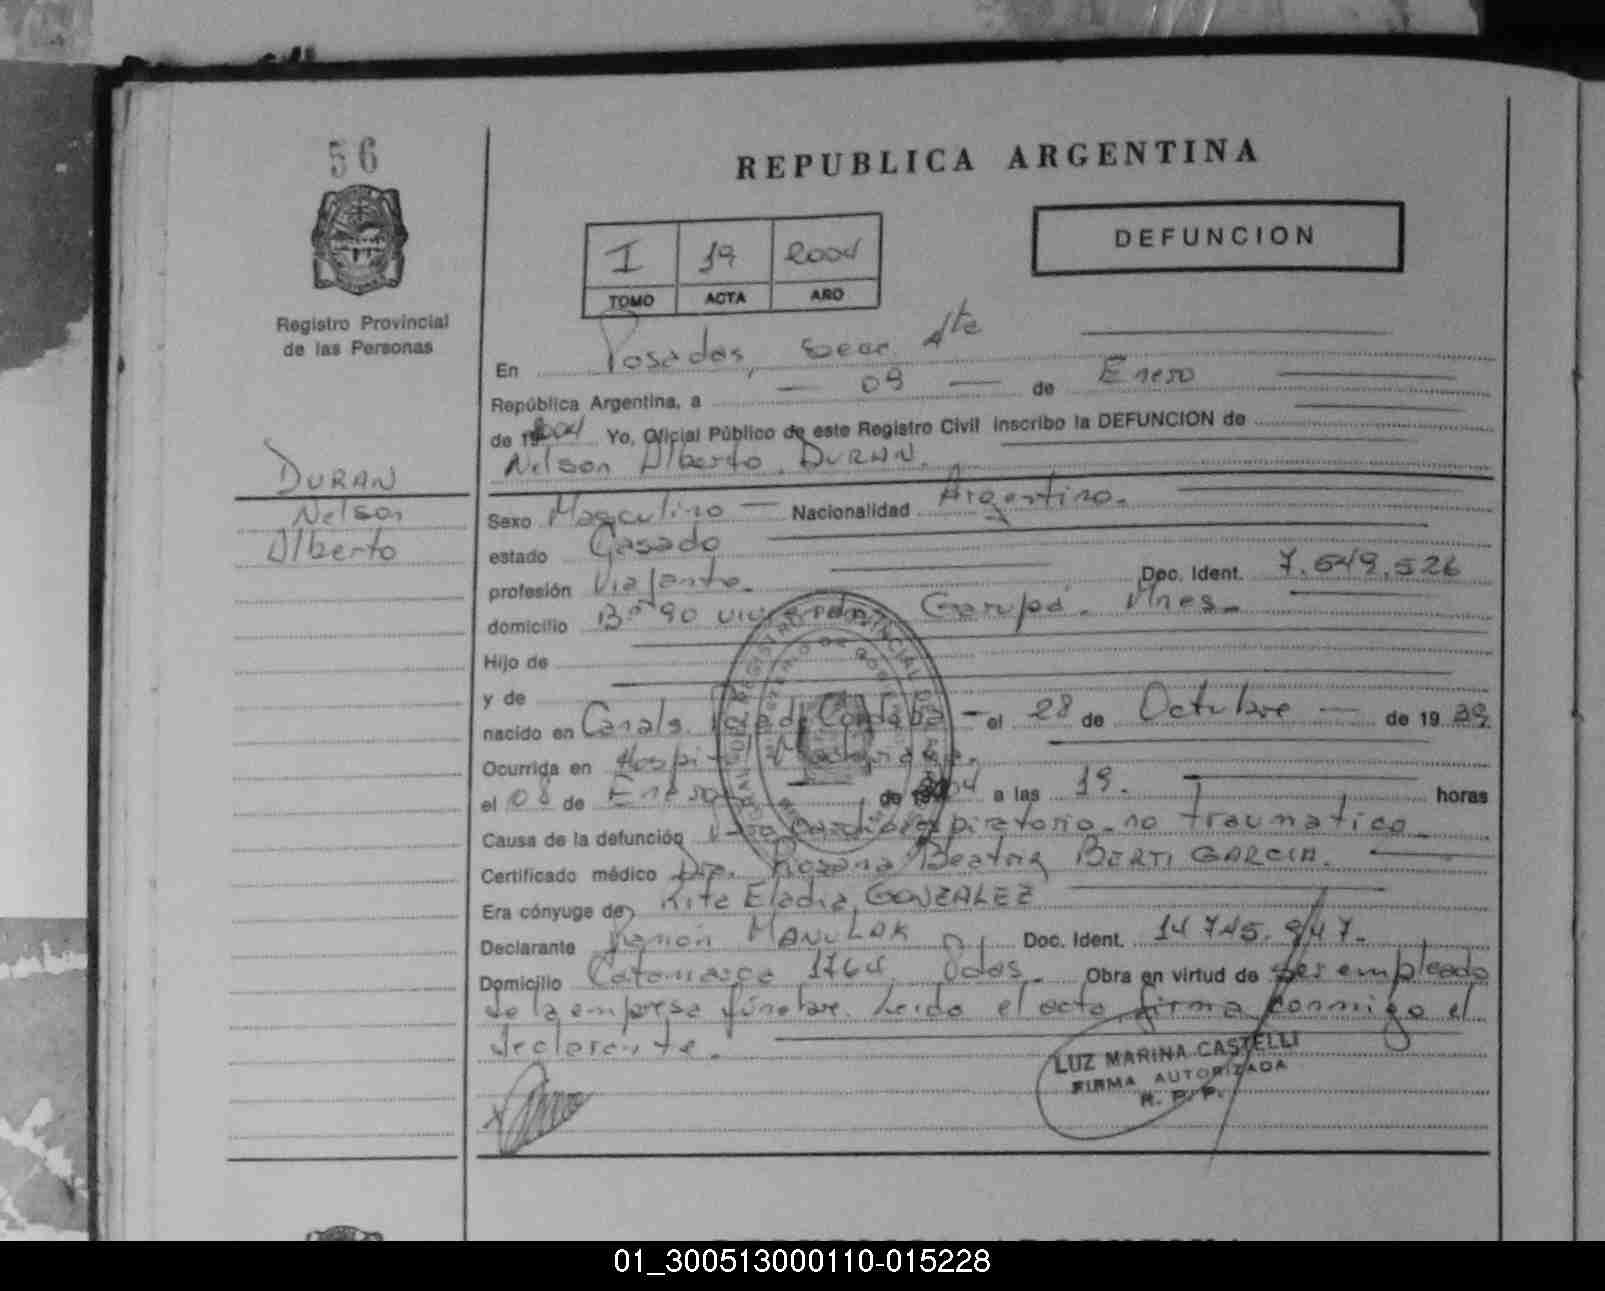 56
REPUBLICA ARGENTINA
I 19 2004
TOMO ACTA AÑO
DEFUNCION
Registro Provincial
de las Personas
En Posadas, Secc. 4ta
República Argentina, a 09 de Enero
de 2004 Yo, Oficial Público de este Registro Civil inscribo la DEFUNCION de
Nelson Alberto DURAN.
DURAN
Nelson
Alberto
Sexo Masculino Nacionalidad Argentino.
estado Casado
profesión Viajante. Doc. Ident. 7.649.526
domicilio Bº 90 viviendas Garupá. Mnes.
Hijo de
y de
nacido en Canals. Pcia de Córdoba el 28 de Octubre de 19 39
Ocurrida en Hospital Madariaga.
el 08 de Enero de 2004 a las 19. horas
Causa de la defunción Paro cardiorespiratorio no traumatico
Certificado médico Dra. Rosana Beatriz BERTI GARCIA.
Era cónyuge de Rita Eladia GONZALEZ
Declarante Ramón MANULAK Doc. Ident. 14.745.947.
Domicilio Catamarca 1764 Pdas. Obra en virtud de ser empleado
de la empresa fúnebre. Leido el acta firma conmigo el
declarante.
LUZ MARINA CASTELLI
FIRMA AUTORIZADA
R. P. P.
01_300513000110-015228